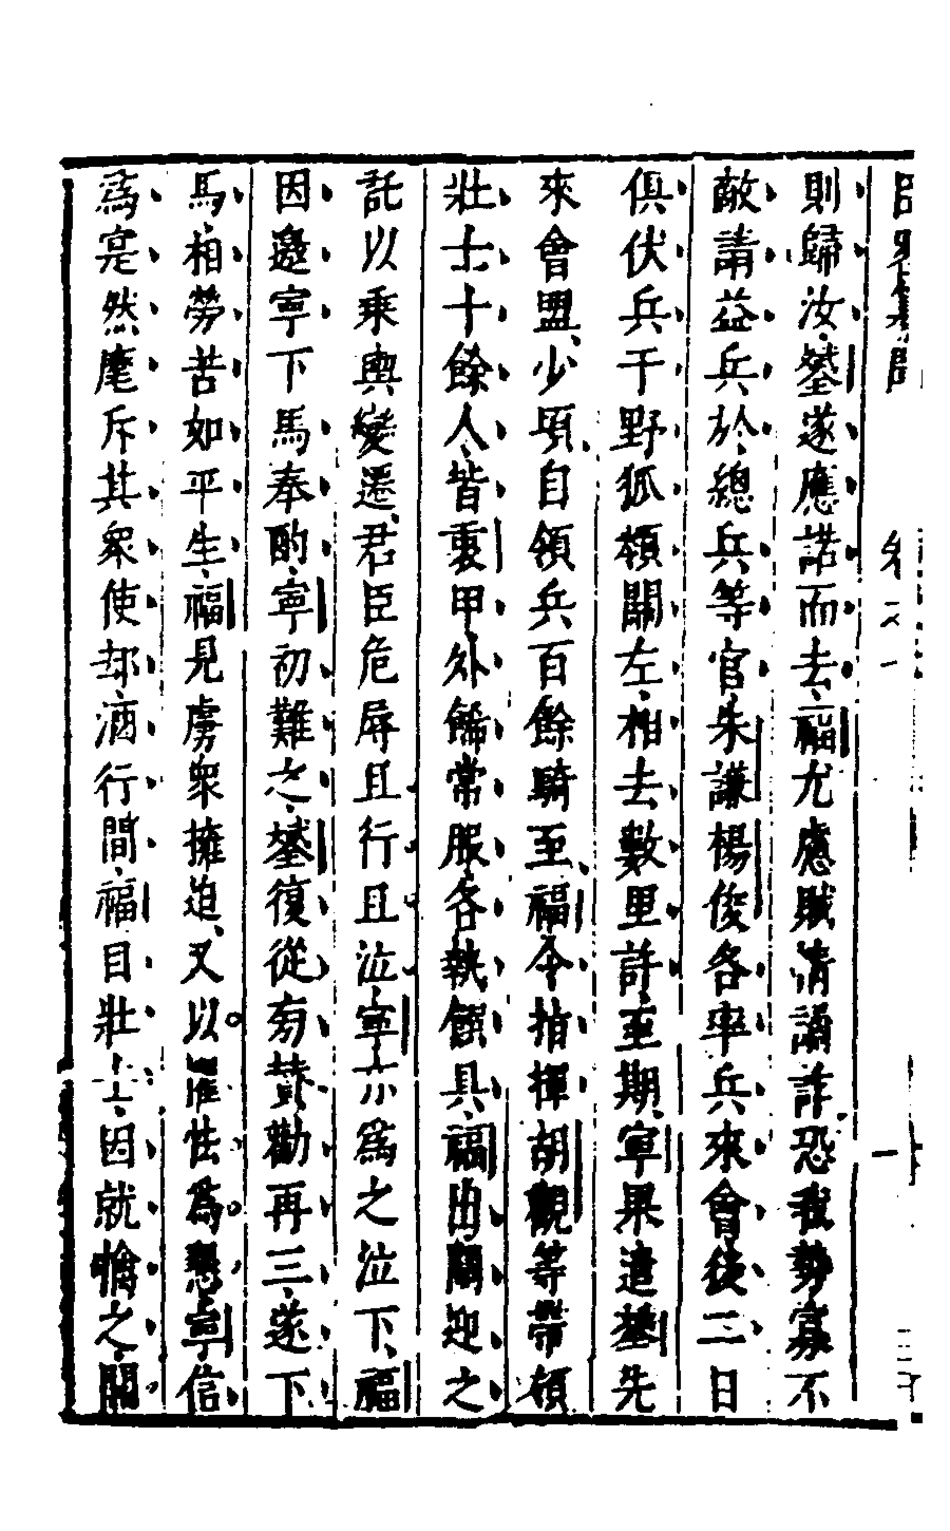 則歸汝鐢遂應諾而去福尤慮賊情譎詐恐我勢寡不
敵請益兵於總兵等官朱謙楊俊各率兵來會後二日
俱伏兵于野狐嶺關左相去數里許至期寧果遣鐢先
來會盟少頃自領兵百餘騎至福令指揮胡觀等帶領
壯士十餘人皆重甲外餙常服各執饌具福出關迎之
託以乘輿變遷君臣危辱且行且泣寧亦爲之泣下福
因邀寧下馬奉酌寧初難之鐢復從旁贊勸再三遂下
馬相勞苦如平生福見虜衆擁迫又以懼怯爲懇寧信
爲寔然麾斥其衆使却酒行間福目壯士因就擒之關